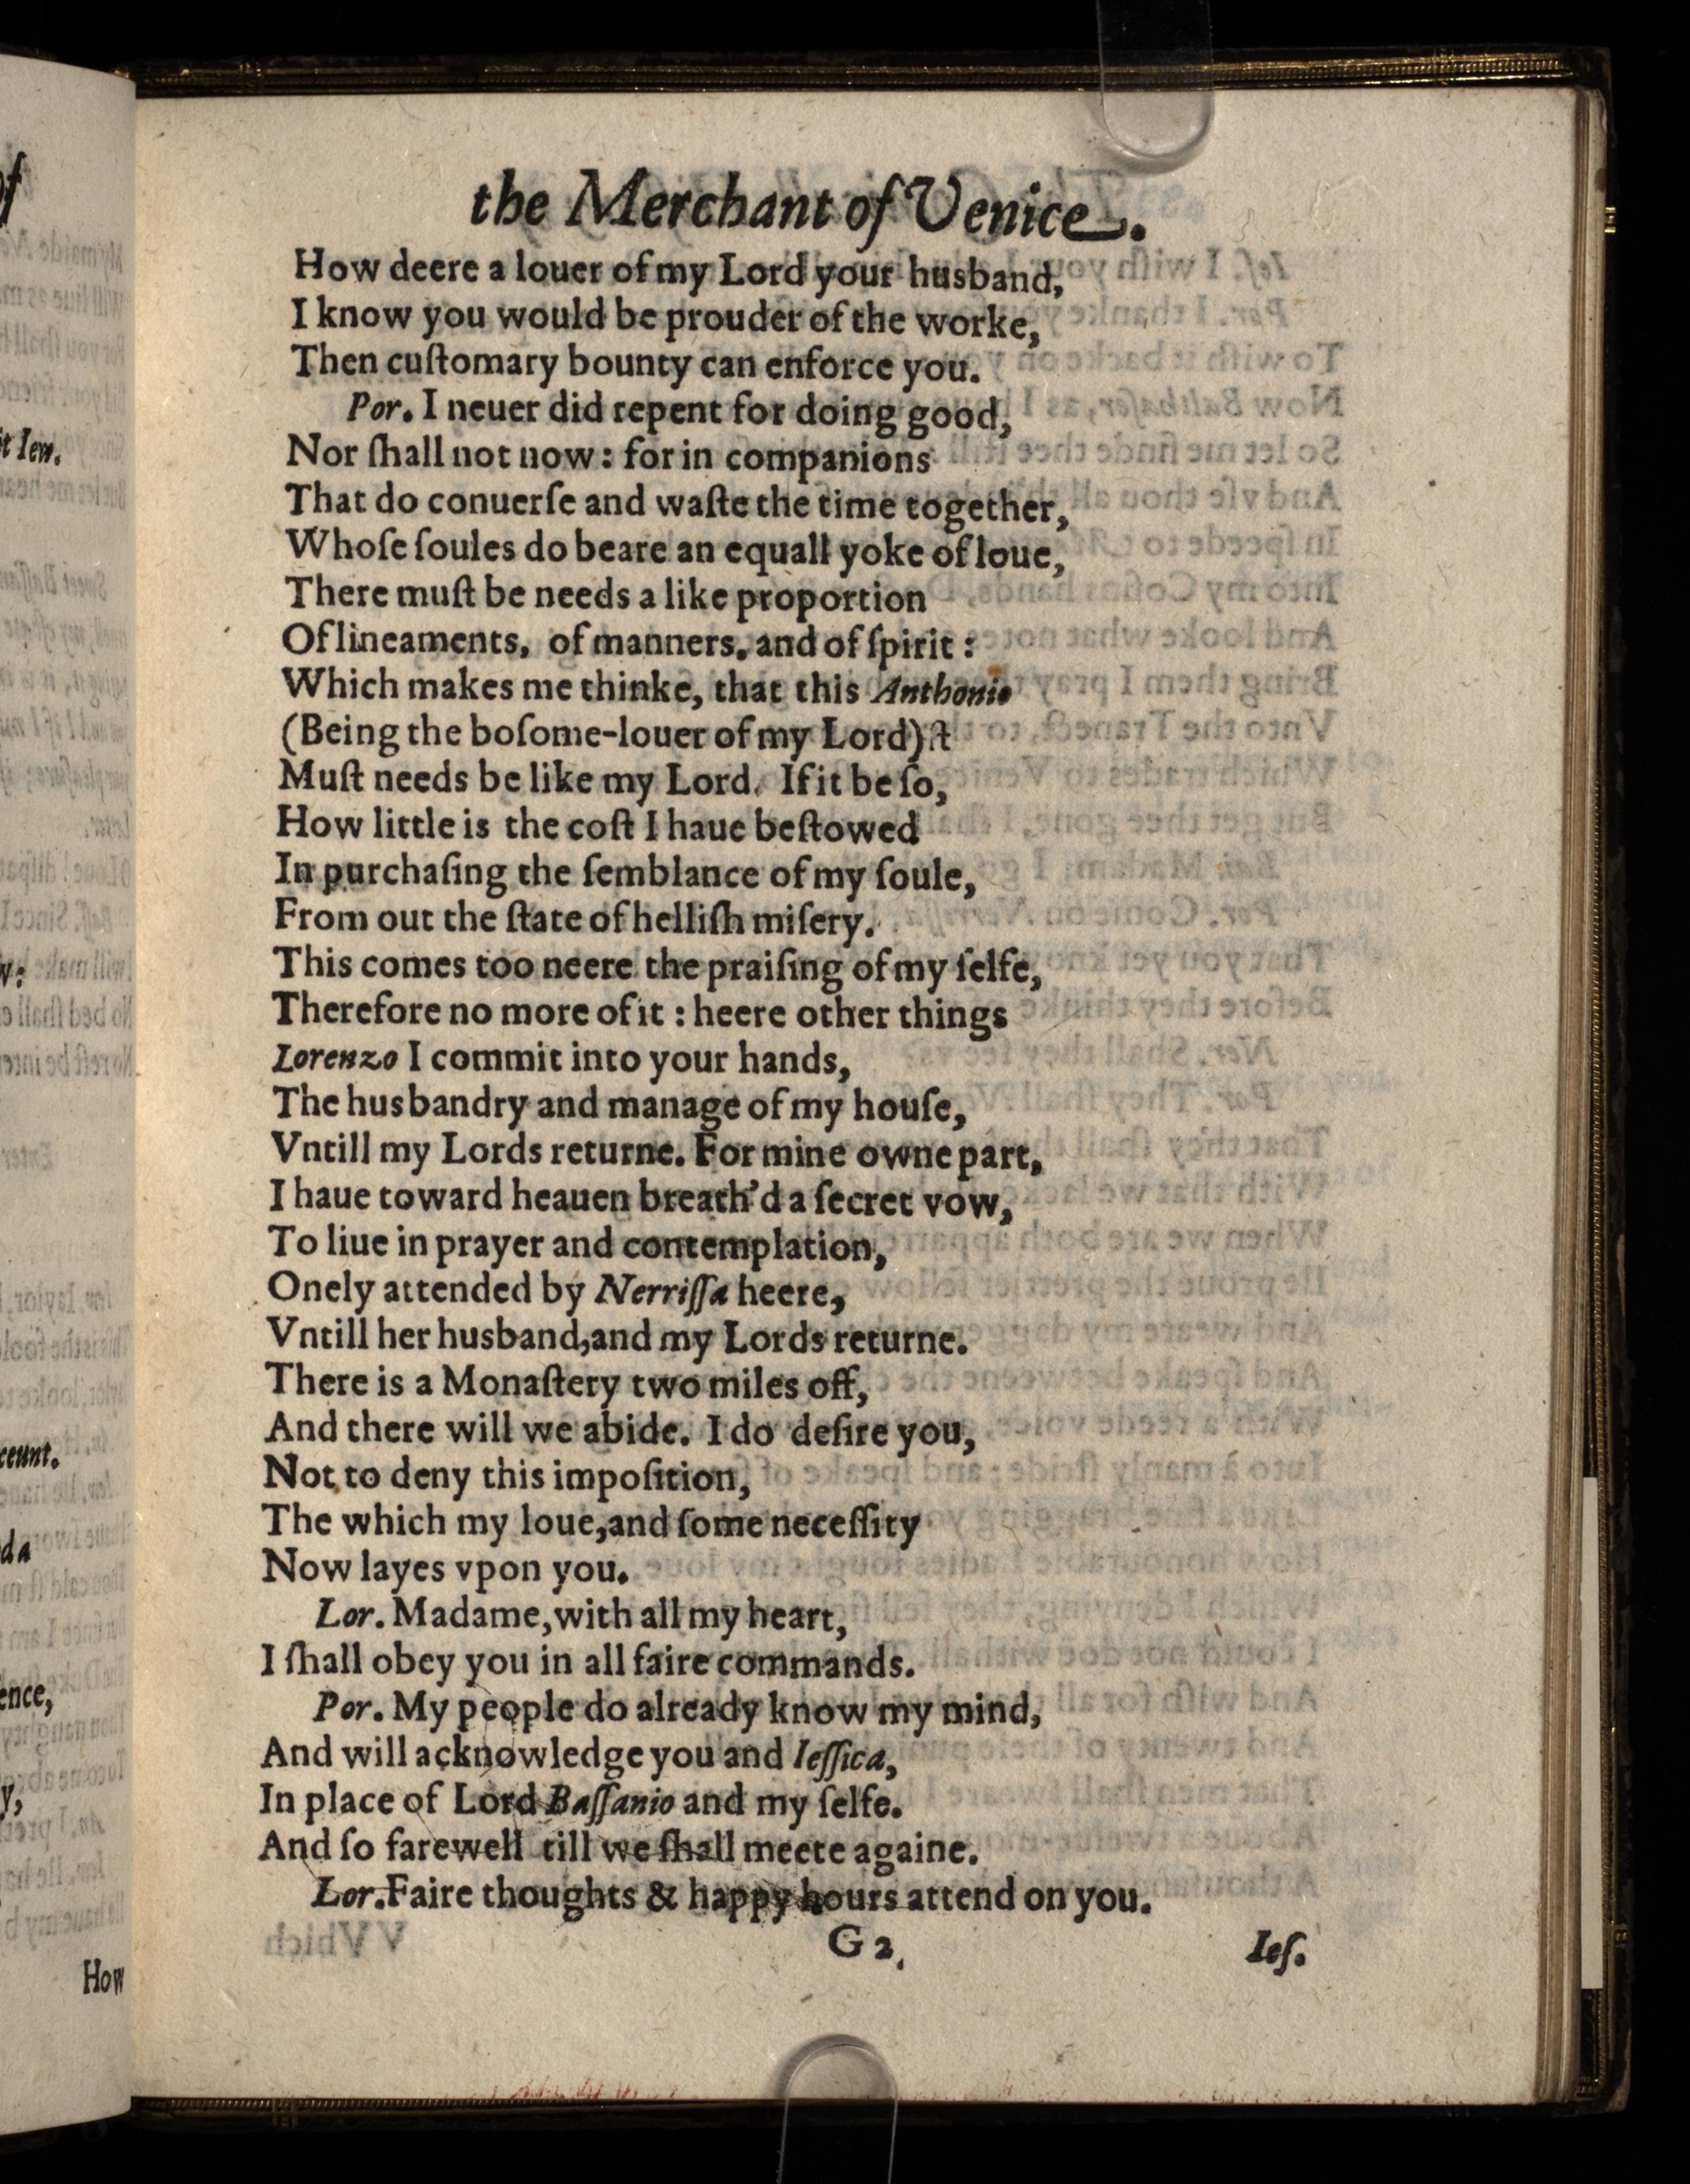 the Merchant of Venice.
How deere a louer of my Lord your husband,
I know you would be prouder of the worke,
Then cuſtomary bounty can enforce you.
Por. I neuer did repent for doing good,
Nor ſhall not now: for in companions
That do conuerſe and waſte the time together,
Whoſe ſoules do beare an equall yoke of loue,
There muſt be needs a like proportion
Of lineaments, of manners, and of ſpirit:
Which makes me thinke, that this Anthonio
(Being the boſome-louer of my Lord)
Muſt needs be like my Lord. If it be ſo,
How little is the coſt I haue beſtowed
In purchaſing the ſemblance of my ſoule,
From out the ſtate of helliſh miſery.
This comes too neere the praiſing of my ſelfe,
Therefore no more of it: heere other things
Lorenzo I commit into your hands,
The husbandry and manage of my houſe,
Vntill my Lords returne. For mine owne part,
I haue toward heauen breath'd a ſecret vow,
To liue in prayer and contemplation,
Onely attended by Nerriſſa heere,
Vntill her husband,and my Lords returne.
There is a Monaſtery two miles off,
And there will we abide. I do deſire you,
Not to deny this impoſition,
The which my loue,and ſome neceſſity
Now layes vpon you.
Lor. Madame,with all my heart,
I ſhall obey you in all faire commands.
Por. My people do already know my mind,
And will acknowledge you and Ieſſica,
In place of Lord Baſſanio and my ſelfe.
And ſo farewell till we ſhall meete againe.
Lor.Faire thoughts & happy hours attend on you.
G 2.
Ieſ.
it Iew.
How